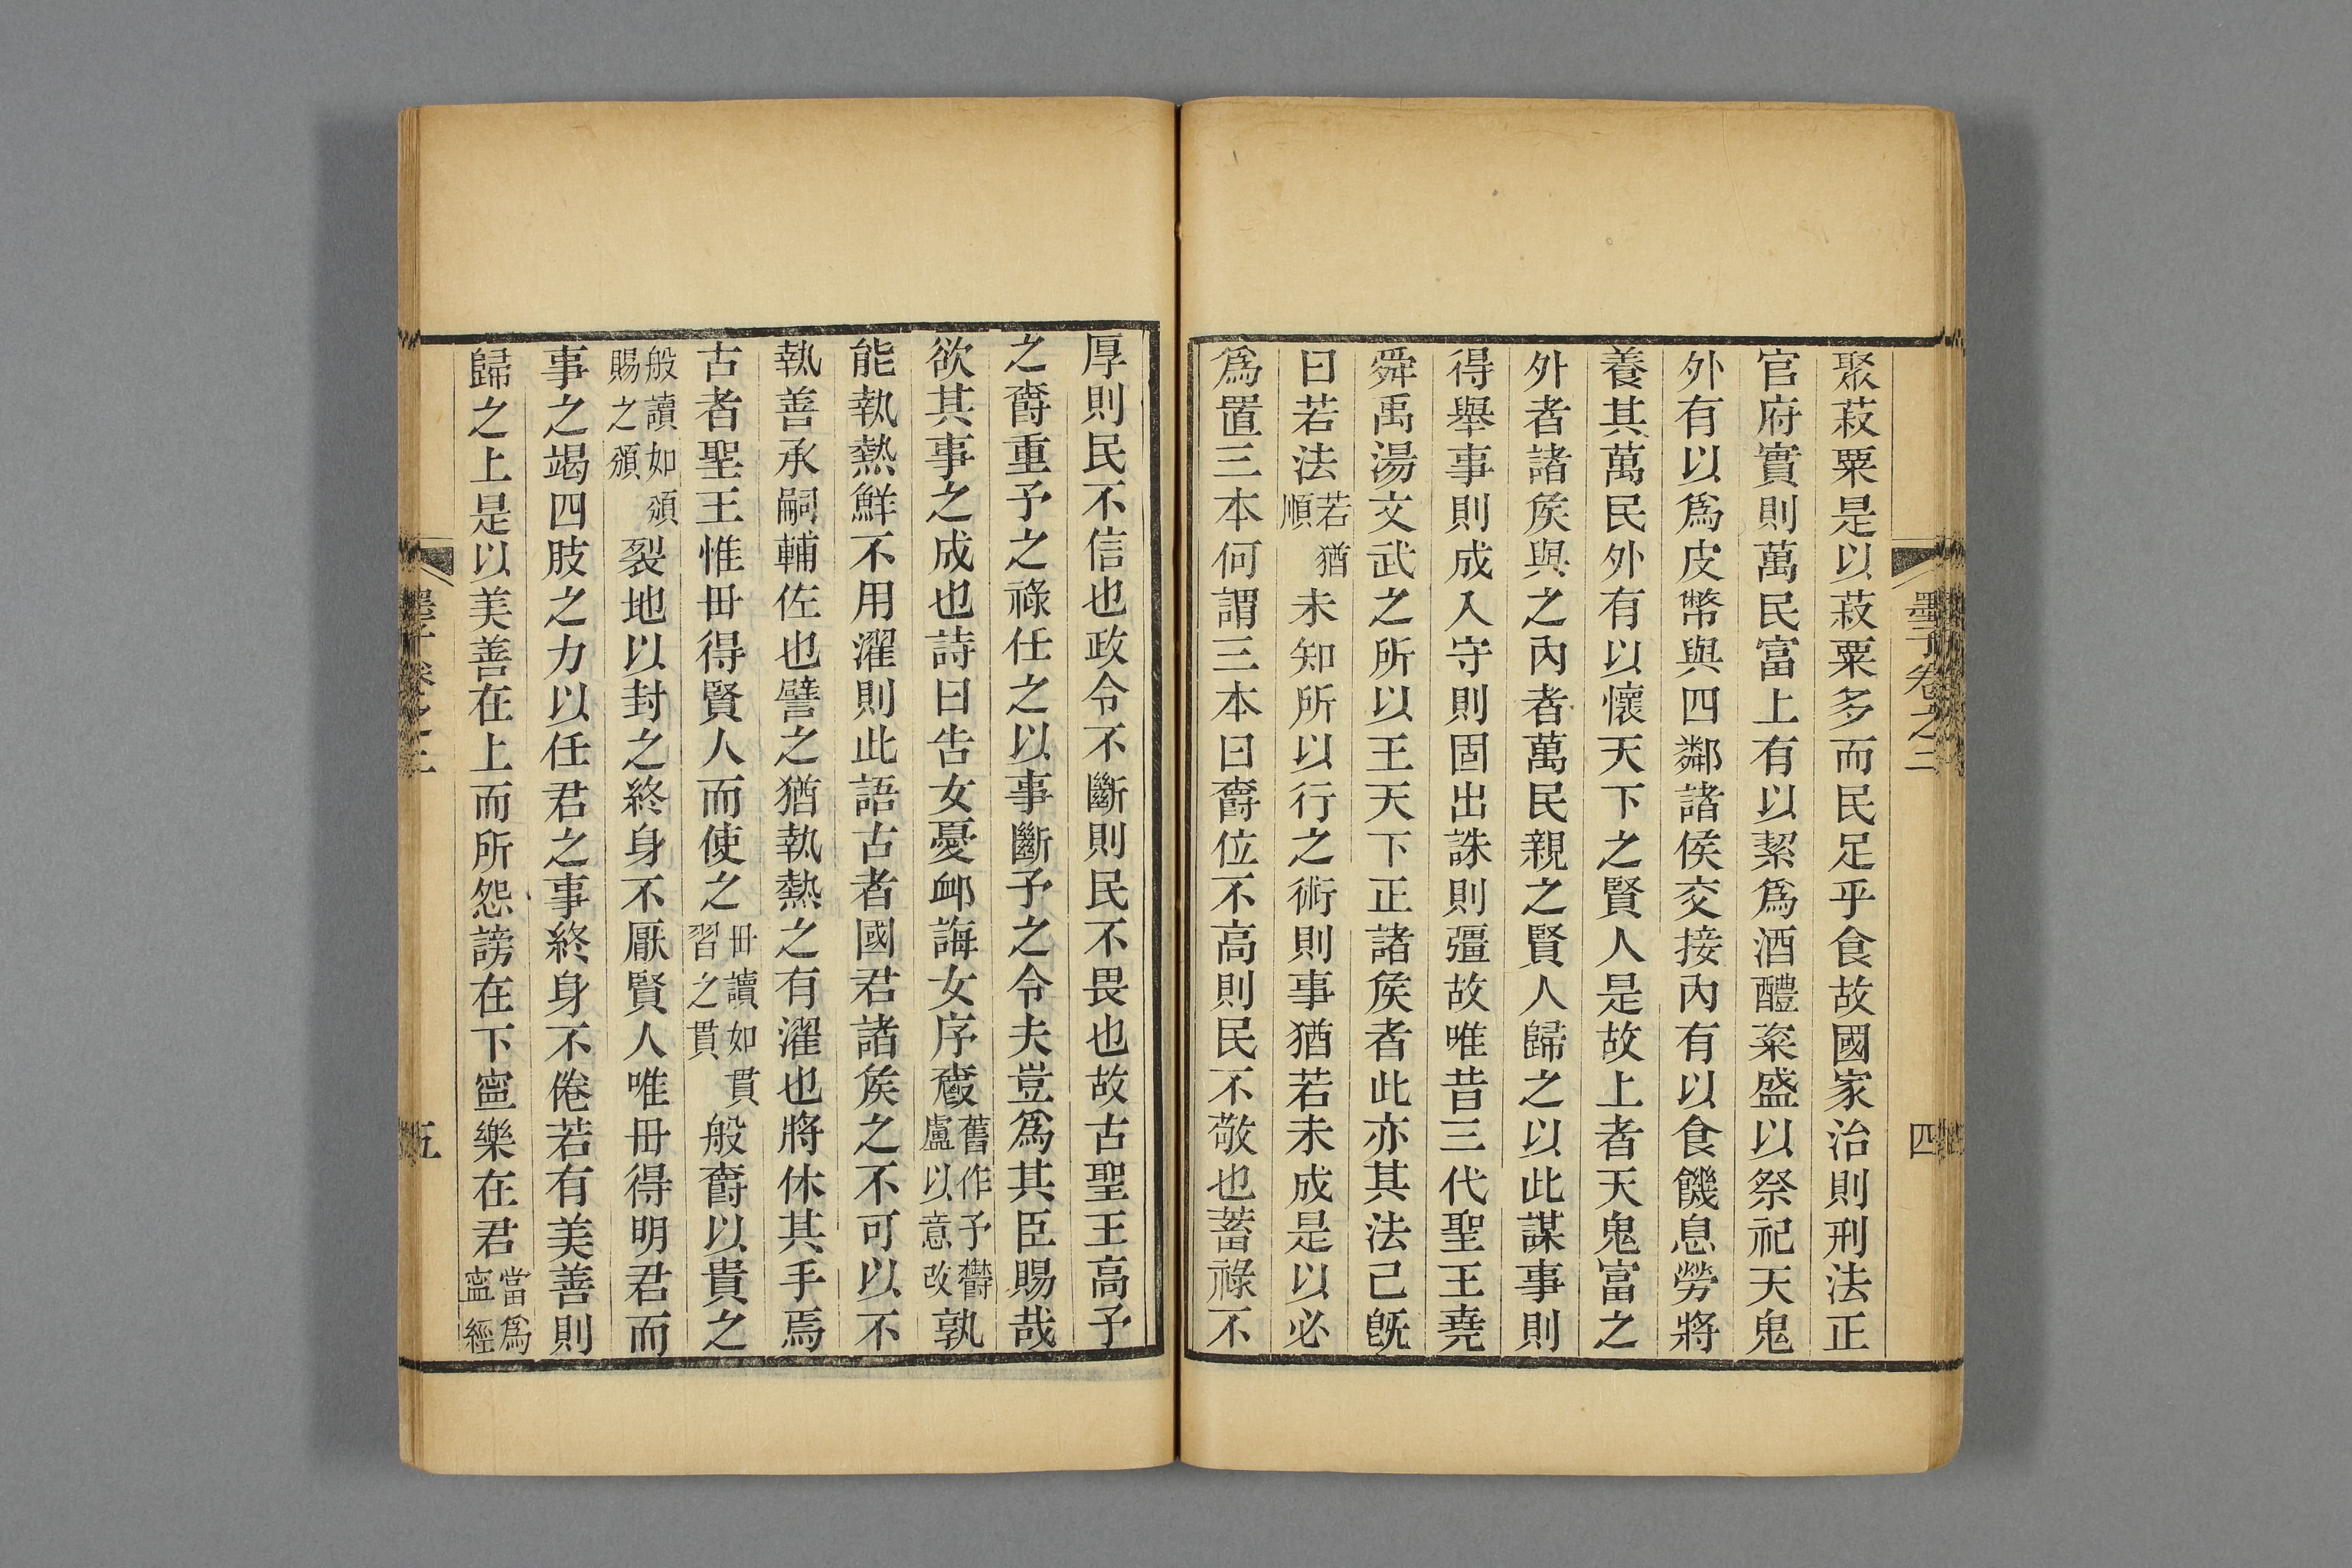 墨子卷之二
四
聚菽粟是以菽粟多而民足乎食故國家治則刑法正
官府實則萬民富上有以絜爲酒醴粢盛以祭祀天鬼
外有以爲皮幣與四鄰諸侯交接內有以食饑息勞將
養其萬民外有以懷天下之賢人是故上者天鬼富之
外者諸矦與之內者萬民親之賢人歸之以此謀事則
得舉事則成入守則固出誅則彊故唯昔三代聖王堯
舜禹湯文武之所以王天下正諸矦者此亦其法己旣
曰若法若猶順未知所以行之術則事猶若未成是以必
爲置三本何謂三本曰爵位不高則民不敬也蓄祿不
厚則民不信也政令不斷則民不畏也故古聖王高予
之爵重予之祿任之以事斷予之令夫豈爲其臣賜哉
欲其事之成也詩曰告女憂卹誨女序爵舊作予鬱盧以意改孰
能執熱鮮不用濯則此語古者國君諸矦之不可以不
執善承嗣輔佐也譬之猶執熱之有濯也將休其手焉
古者聖王惟毌得賢人而使之毌讀如貫習之貫般爵以貴之
般讀如頒賜之頒裂地以封之終身不厭賢人唯毌得明君而
事之竭四肢之力以任君之事終身不倦若有美善則
歸之上是以美善在上而所怨謗在下寍樂在君當爲寍經
五